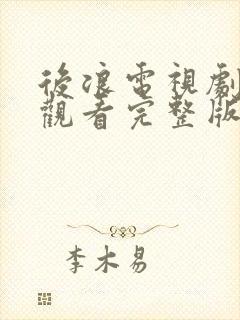 後浪電視劇
觀看完整版
李木易